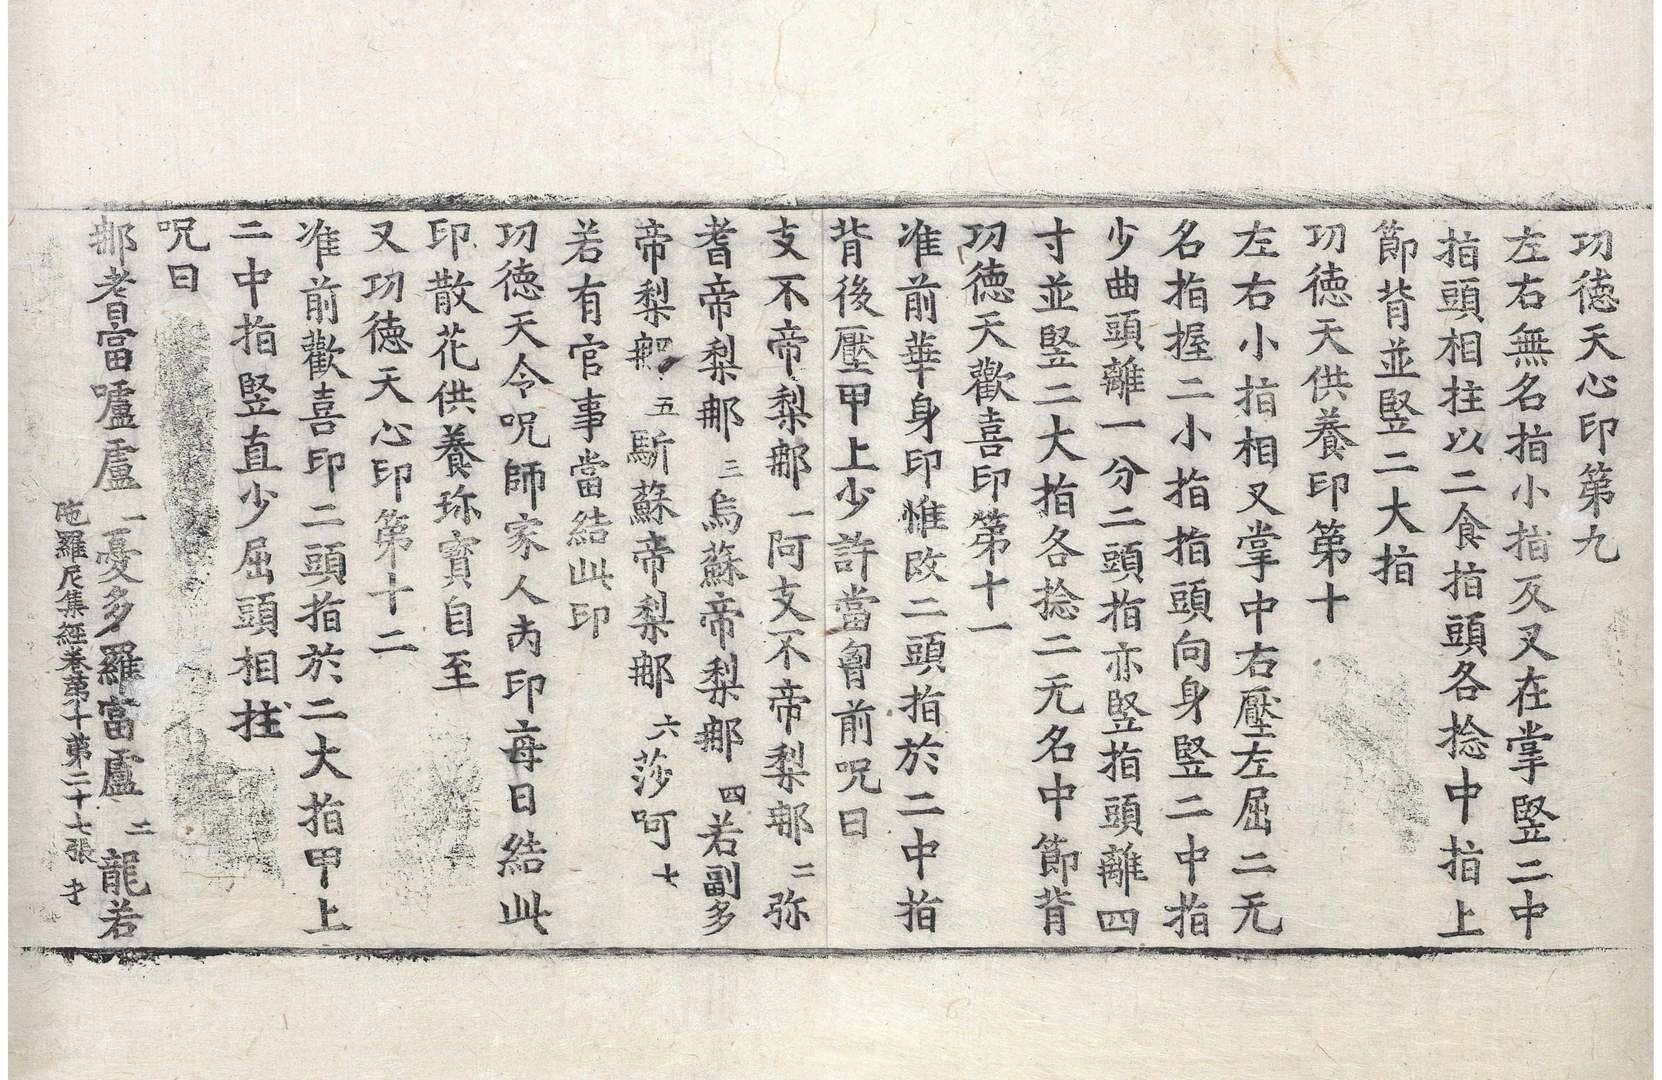 功徳天心印第九
左右無名指小指反叉在掌竪二中
指頭相拄以二食指頭各捻中指上
節背並竪二大指
功徳天供養印第十
左右小指相叉掌中右壓左屈二无
名指握二小指指頭向身竪二中指
少曲頭離一分二頭指亦竪指頭離四
寸並竪二大指各捻二无名中節背
功徳天歡喜印第十一
准前華身印惟改二頭指於二中指
背後壓甲上少許當匈前呪曰
支不帝梨那一阿支不帝梨那二弥
耆帝梨那三烏蘇帝梨那四若副多
帝梨那五斲蘇帝梨那六莎呵七
若有官事當結此印
功徳天令呪師家人内印每日結此
印散花供養珎寳自至
又功徳天心印第十二
准前歡喜印二頭指於二大指甲上
二中指竪直少屈頭相拄
呪曰
那耆當嚧盧一憂多羅當盧二龍若
陁羅尼集經卷第十第二十七張 才